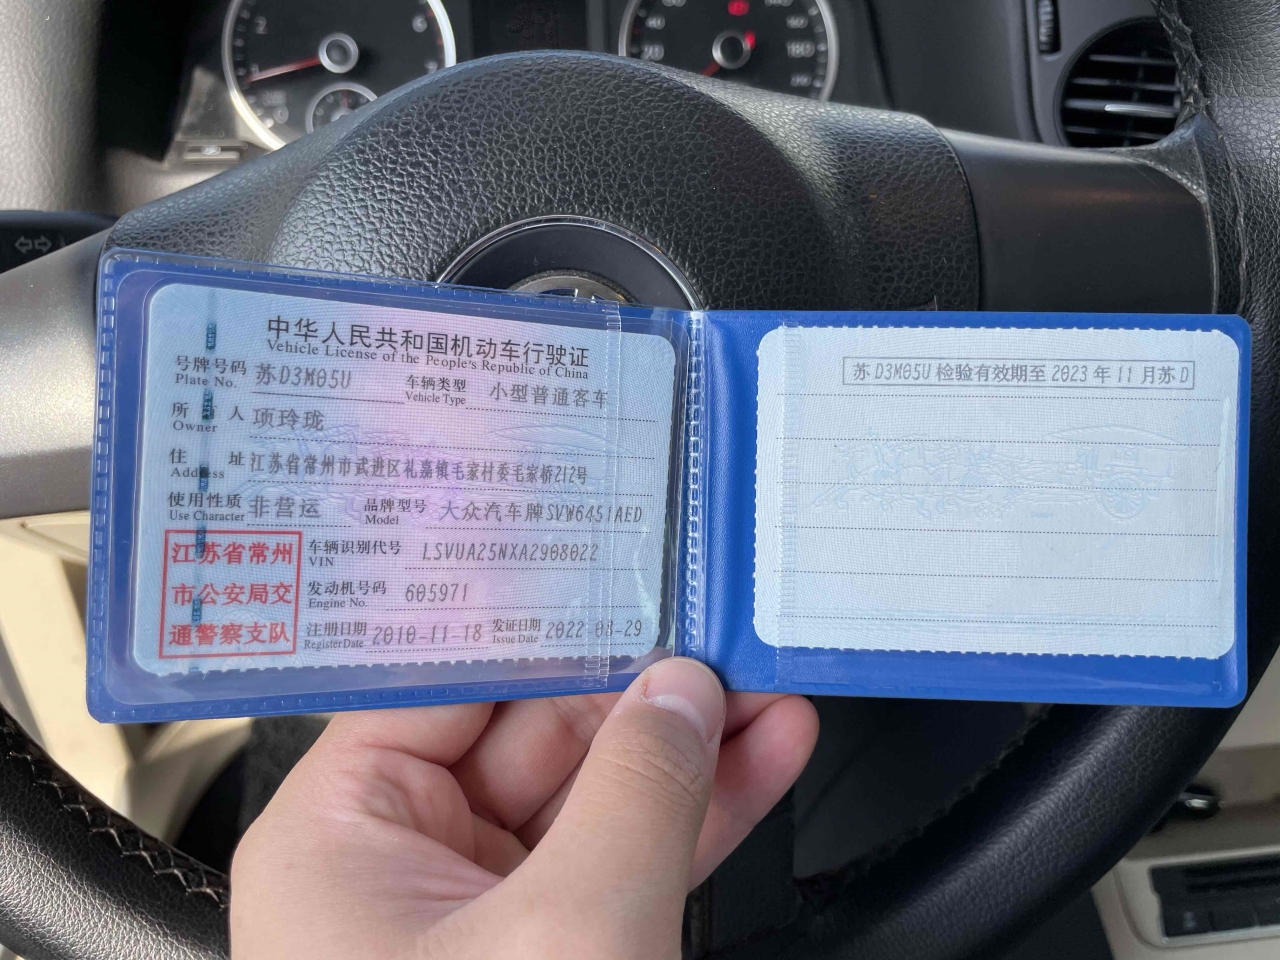 中华人民共和国机动车行驶证
Vehicle License of the People's Republic of China
号牌号码 苏D3M05U 车辆类型 小型普通客车
Plate No. Vehicle Type
所有人 项玲珑
Owner
住址 江苏省常州市武进区礼嘉镇毛家村委毛家桥212号
Address
使用性质 非营运 品牌型号 大众汽车牌SVW6451AED
Use Character Model
江苏省常州
市公安局交
通警察支队
车辆识别代号 LSVUA25NXA2908022
VIN
发动机号码 605971
Engine No.
注册日期 2010-11-18 发证日期 2022-08-29
Register Date Issue Date
苏D3M05U检验有效期至2023年11月苏D
2
6
40
20
160
180